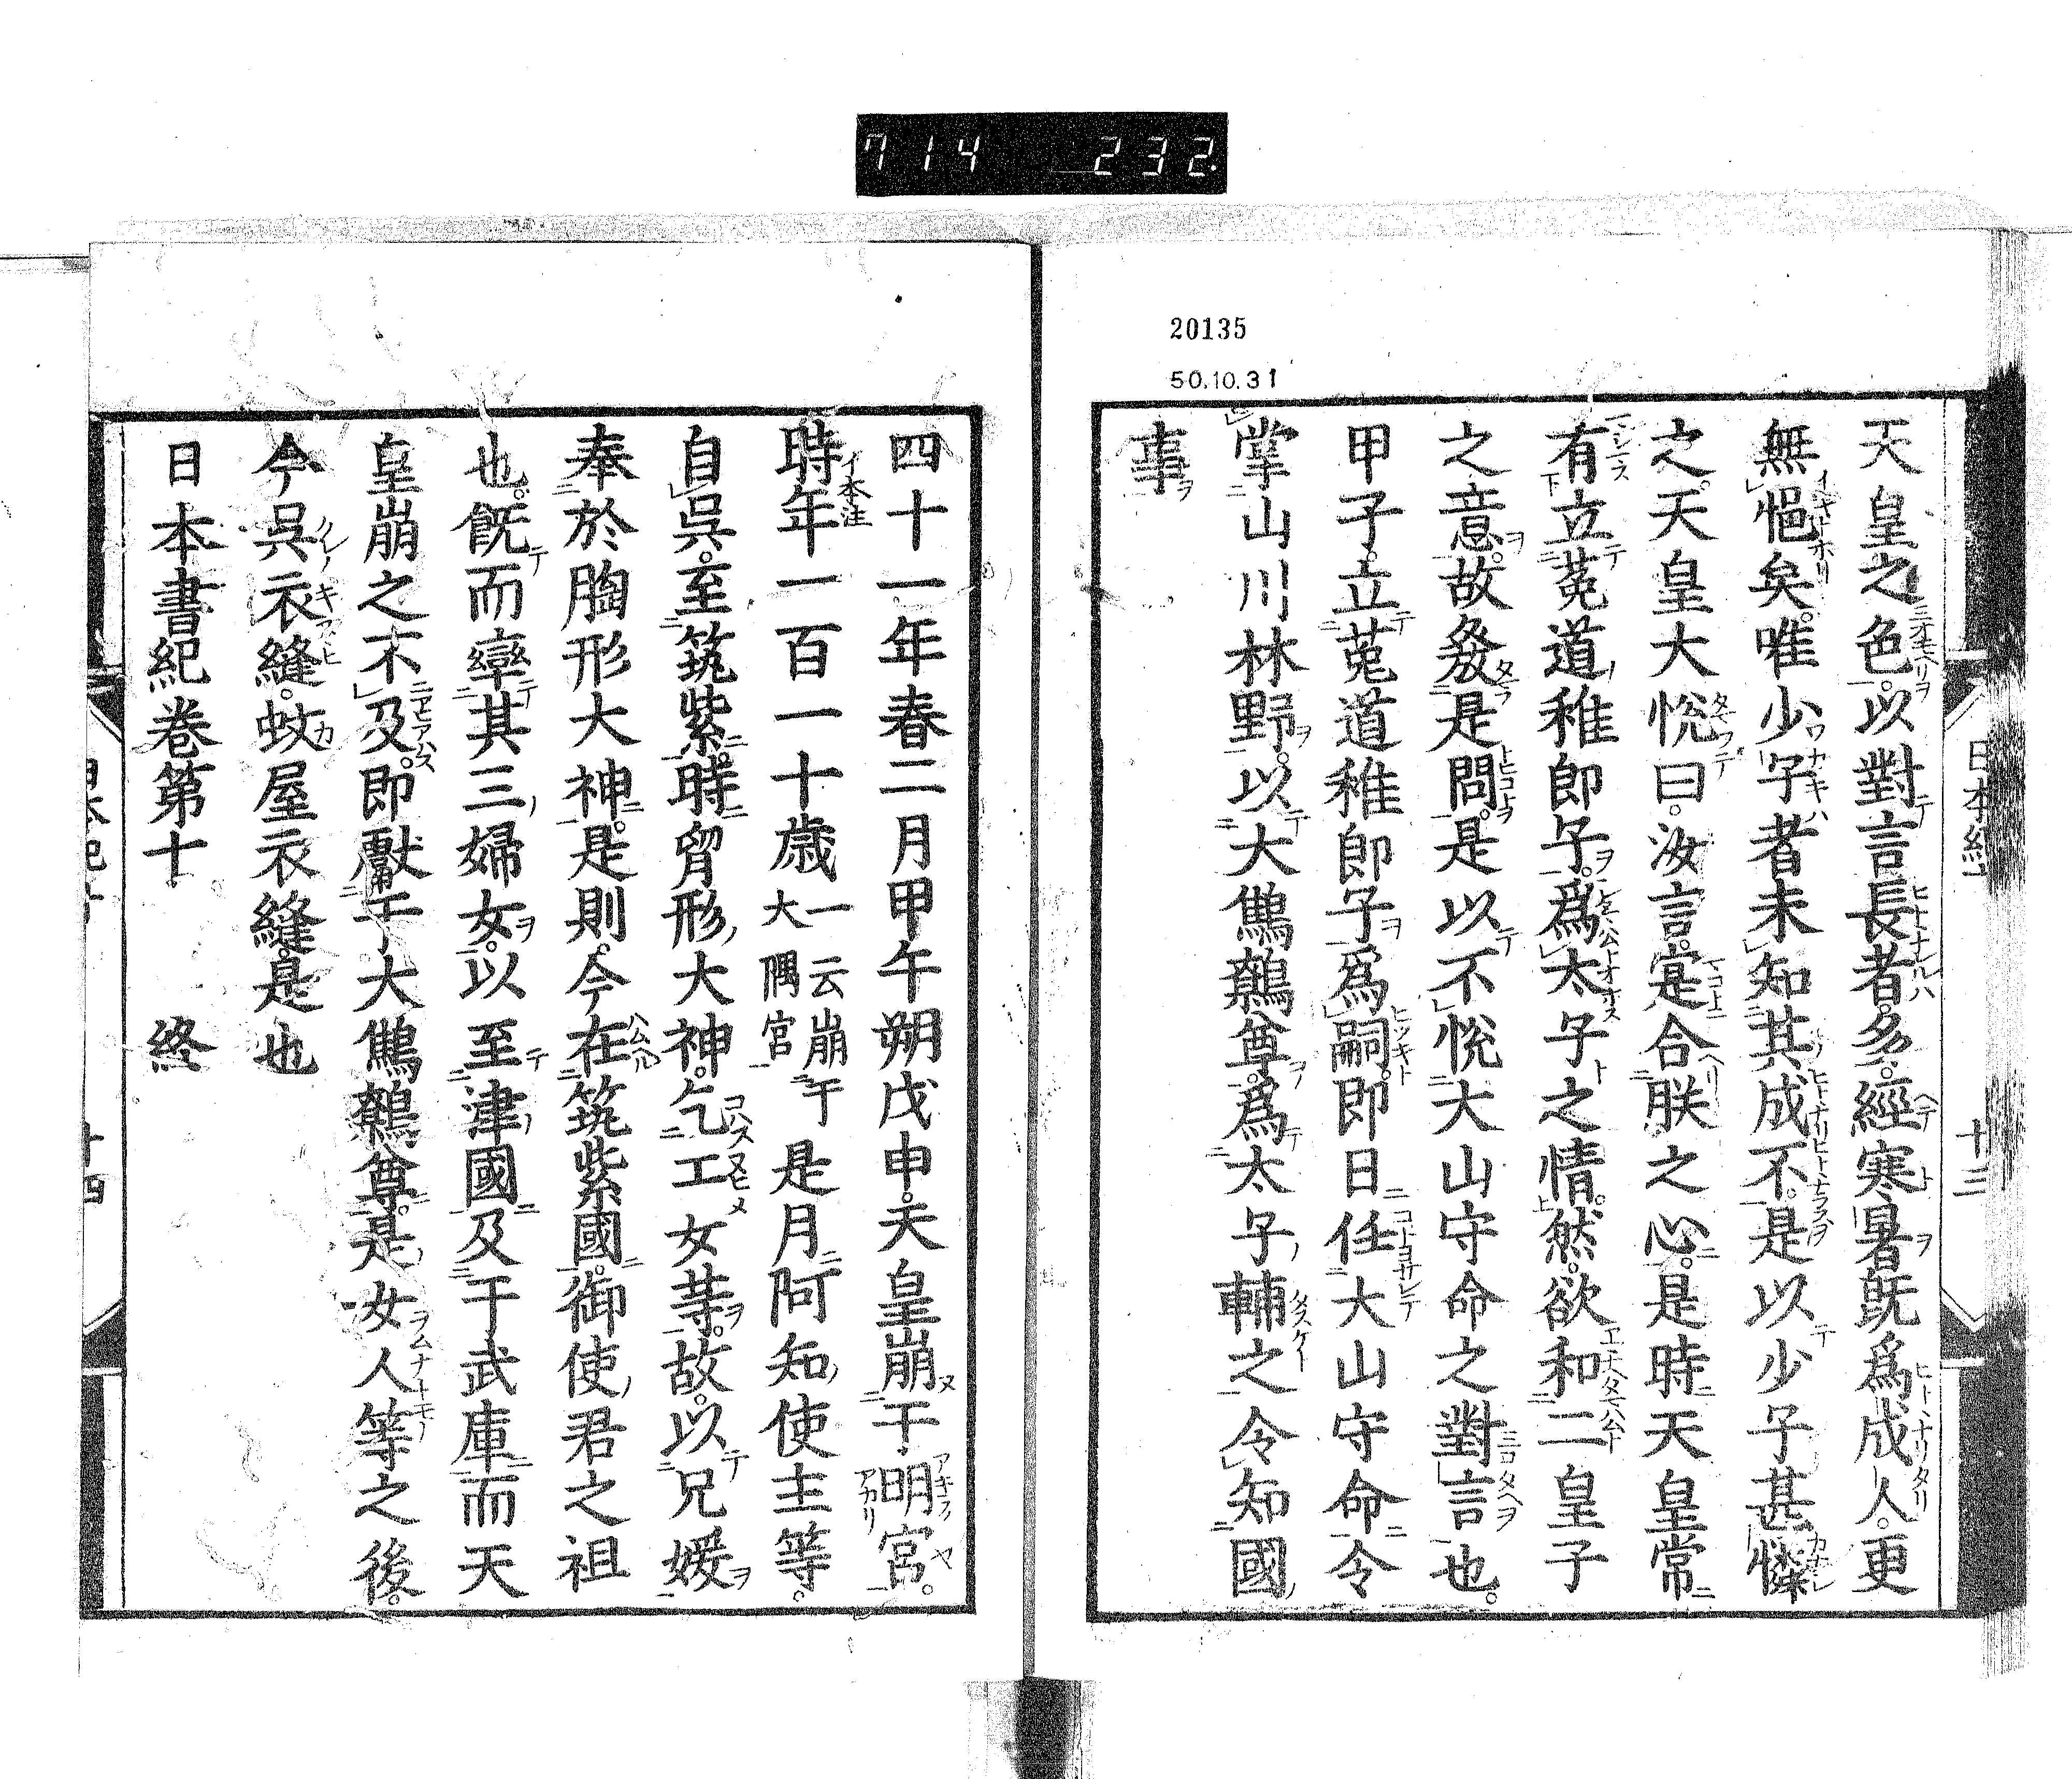 714 232.
20135
50.10.31
天皇之色。以對言長者。多。經寒暑既爲成人。更
無悒矣。唯少子者未知其成不。是以少子甚憐
之。天皇大悅曰。汝言寔合朕之心。是時天皇常
有立菟道稚郎子。爲太子之情。然。欲和二皇子
之意。故發是問。是以不悅大山守命之對言也。
甲子。立菟道稚郎子爲嗣。即日任大山守命令
掌山川林野。以大鷦鷯尊。爲太子輔之令知國
事
十三
四十一年春二月甲午朔戊申。天皇崩于明宮。
時年一百一十歳 一云崩于大隅宮 是月阿知使主等。
イ本注
自呉。至筑紫。時胷形大神。乞工女等。故。以兄媛
奉於胸形大神。是則。今在筑紫國。御使君之祖
也。既而率其三婦女。以至津國及于武庫而天
皇崩之不及。即獻于大鷦鷯尊。是女人等之後。
今呉衣縫。蚊屋衣縫。是也
日本書紀巻第十 終